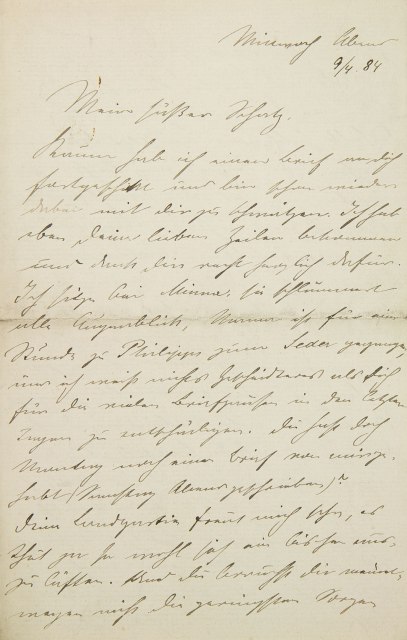 Mittwoch Abend
9/4. 84
Mein süßer Schatz.
Kaum hab ich einen Brief an dich
fortgeschickt und bin schon wieder
dabei mit dir zu schwätzen. Ich hab
eben Deine lieben Zeilen bekommen
und dank dir recht herzlich dafür.
Ich sitze bei Minna, sie schlummert
alle Augenblick, Mama ist für eine
Stunde zu Philipps zum Seder gegangen,
und ich weiß nichts Gescheidteres als dich
für die vielen Briefpausen in den letzten
Tagen zu entschädigen. Du hast doch
Montag noch einen Brief von mir ge-
habt (Sonntag Abend geschrieben)?
Deine Landpartie freut mich sehr, es
thut ja so wohl sich ein bischen aus-
zulüften. Und du brauchst dir meinet-
wegen nicht die geringsten Sorgen